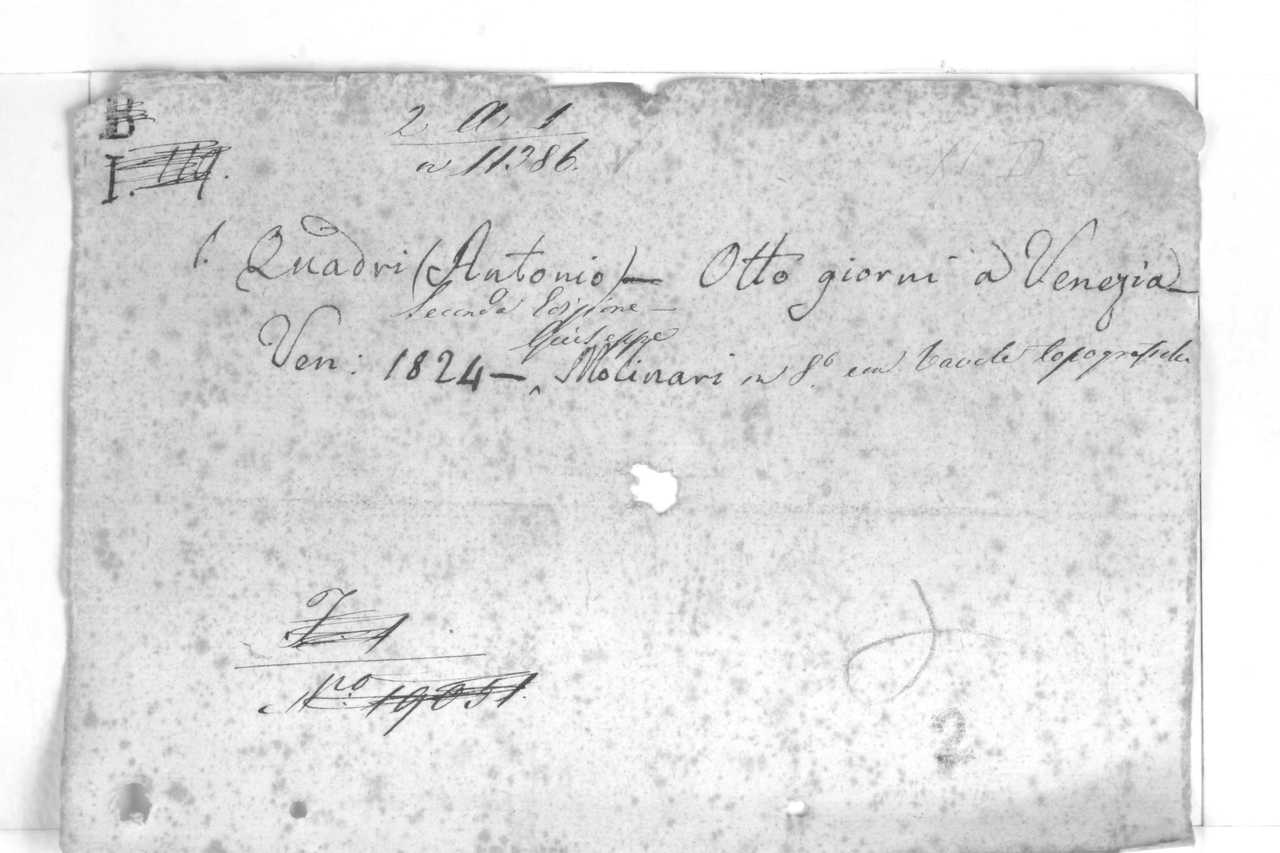 B
I.
2 A. 1
n 11.286.
1. Quadri (Antonio) — Otto giorni a Venezia —
Seconda Edizione —
Giuseppe
Ven: 1824 — ‸ Molinari in 8.º con tavole topografiche
N.ro 19051.
2